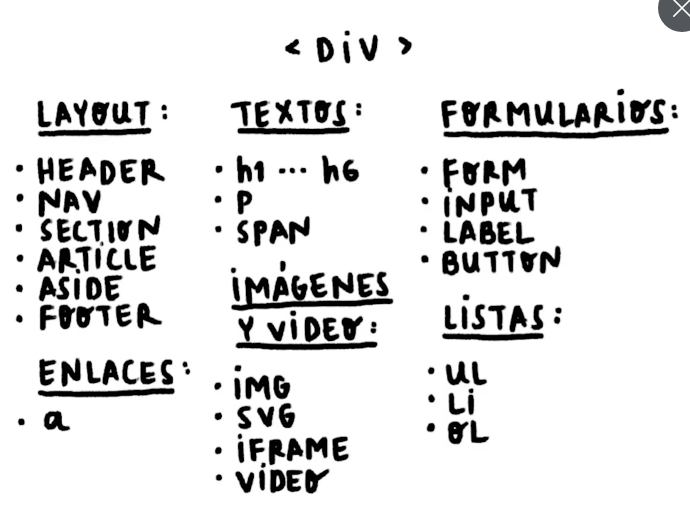 < DiV >
LAYOUT:
• HEADER
• NAV
• SECTION
• ARTÍCLE
• ASIDE
• FOOTER
ENLACES:
• a
TEXTOS:
• h1 ... h6
• P
• SPAN
iMÁGENES
Y ViDEO:
• iMG
• SVG
• iFRAME
• ViDEO
FORMULARiOS:
• FORM
• iNPUT
• LABEL
• BUTTON
LiSTAS:
• UL
• Li
• OL